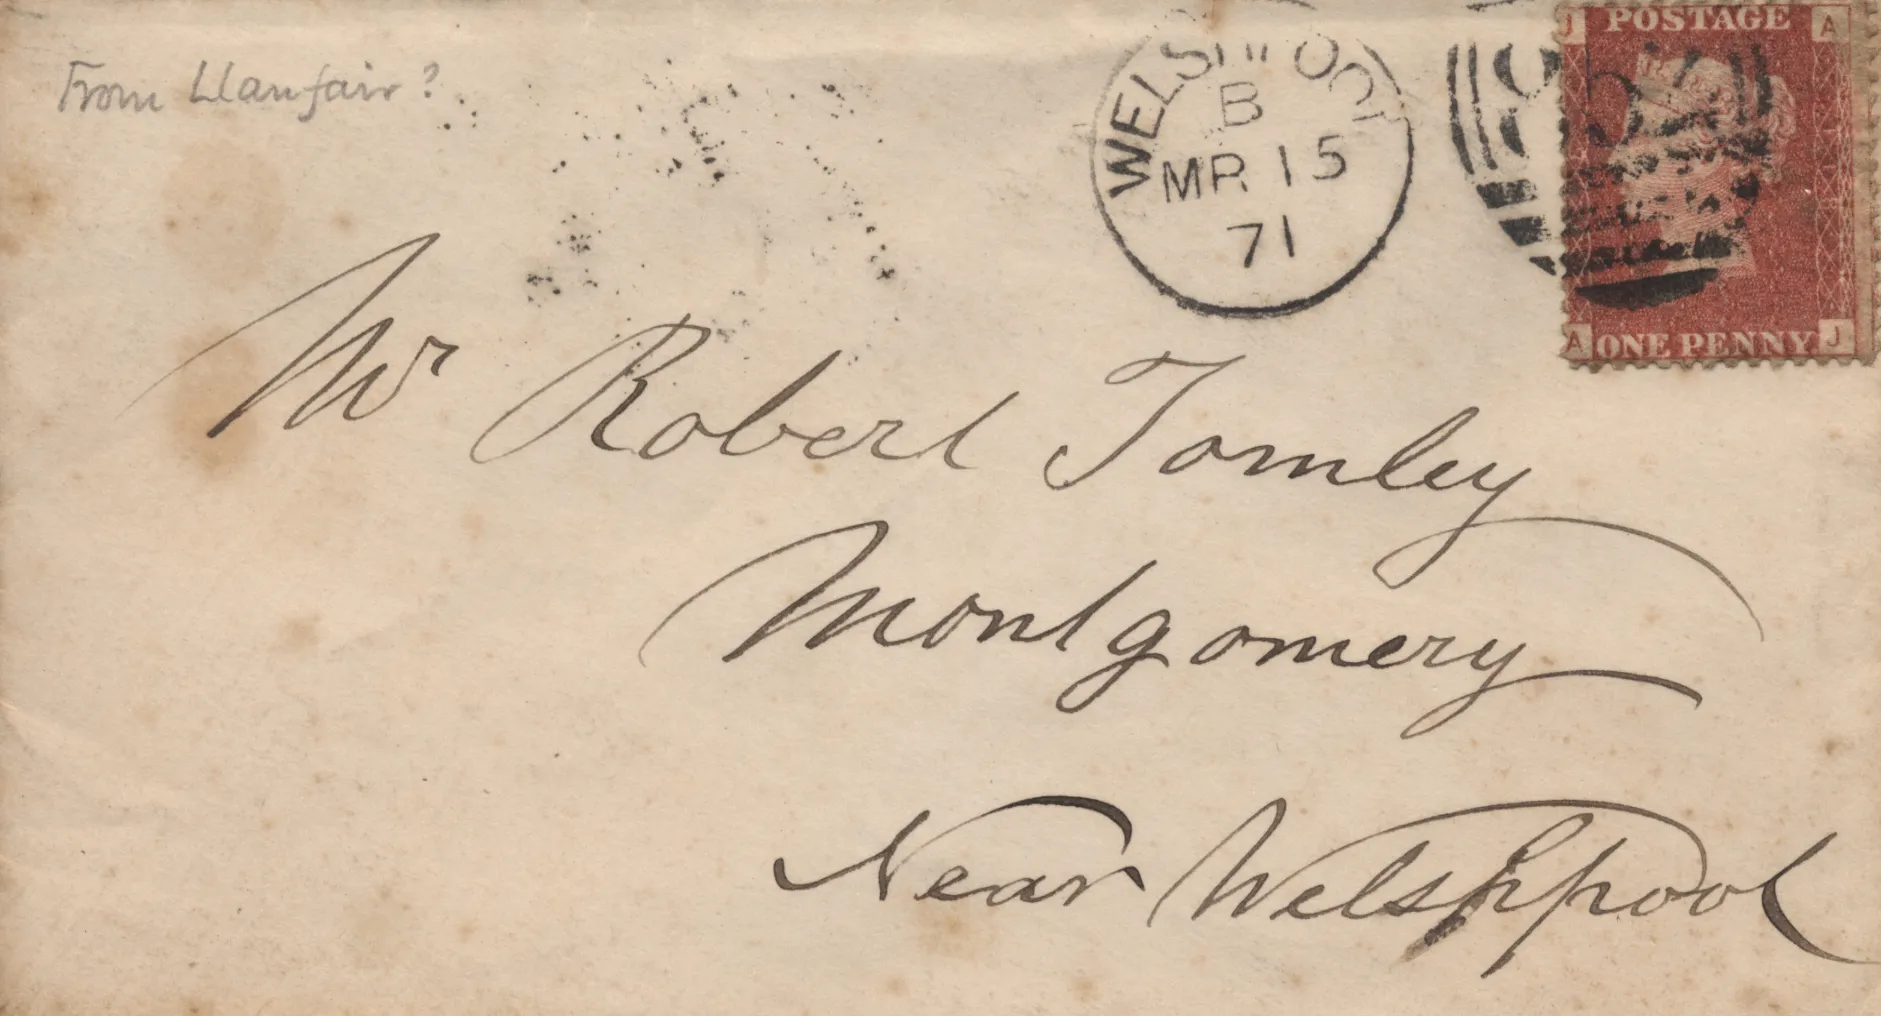 From Llanfair?
WELSHPOOL
B
MR 15
71
J POSTAGE A
A ONE PENNY J
Mr Robert Tomley
Montgomery
Near Welshpool